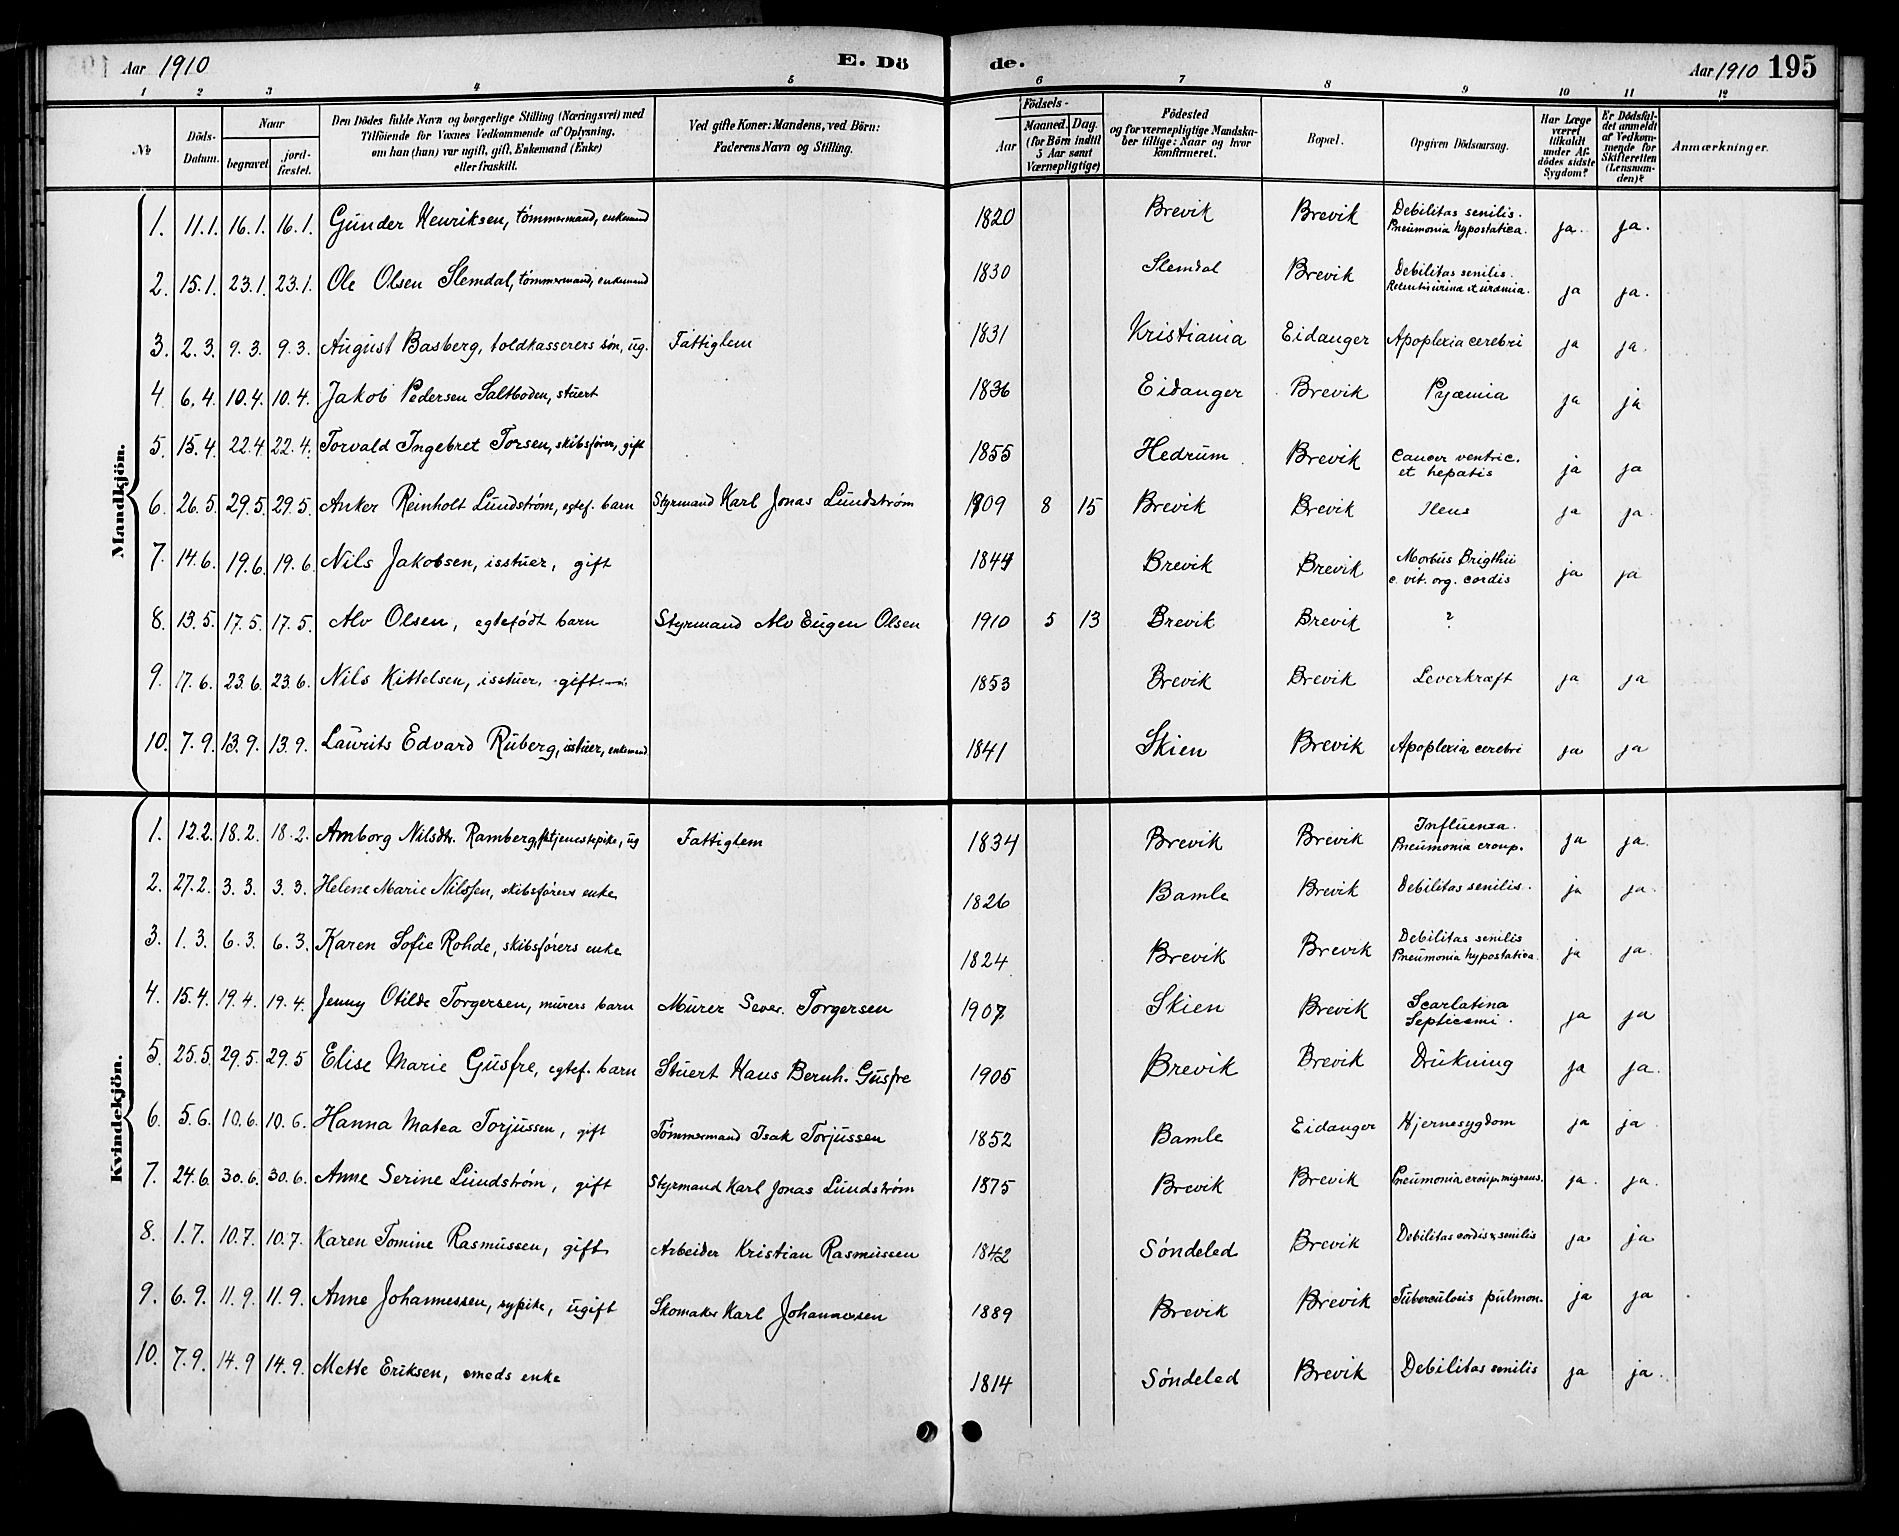 Aar 1910 E. Dö de. Aar 1910 195
1 2 3 4 5 6 7 8 9 10 11 12
№ Döds-Datum. Naar begravet. jord-fæstet. Den Dödes fulde Navn og borgerlige Stilling (Næringsvei) med Tilföiende for Voxnes Vedkommende af Oplysning, om han (hun) var ugift, gift, Enkemand (Enke) eller fraskilt. Ved gifte Koner: Mandens, ved Börn: Faderens Navn og Stilling. Födsels- Aar Maaned. Dag. (for Börn indtil 5 Aar samt Værnepligtige) Födested og for værnepligtige Mandskaber tillige: Naar og hvor konfirmeret. Bopæl. Opgiven Dödsaarsag. Har Læge været tilkaldt under Afdödes sidste Sygdom? Er Dödsfaldet anmeldt af Vedkommende for Skifteretten (Lensmanden)? Anmærkninger.
Mandkjön.
1. 11.1. 16.1. 16.1. Gunder Henriksen, tømmermand, enkemand 1820 Brevik Brevik Debilitas senilis. Pneumonia hypostatica. ja. ja.
2. 15.1. 23.1. 23.1. Ole Olsen Slemdal, tømmermand, enkemand 1830 Slemdal Brevik Debilitas senilis. Retentis urina et urämia. ja ja.
3. 2.3. 9.3. 9.3. August Basberg, toldkasserers søn, ug. Fattiglem 1831 Kristiania Eidanger Apoplexia cerebri ja ja.
4 6.4. 10.4. 10.4. Jakob Pedersen Saltboden, stuert 1836 Eidanger Brevik Pyæmia ja ja
5. 15.4. 22.4 22.4. Torvald Ingebret Torsen, skibsfører, gift 1855 Hedrum Brevik Cancer ventric. et hepatis ja ja
6. 26.5. 29.5. 29.5. Anker Reinholt Lundstrøm, egtef. barn Styrmand Karl Jonas Lundstrøm 1909 8 15 Brevik Brevik Ileus ja ja.
7. 14.6. 19.6. 19.6. Nils Jakobsen, isstuer, gift 1844 Brevik Brevik Morbus Brigthii c. vit. org. cordis ja ja
8. 13.5. 17.5. 17.5. Alv Olsen, egtefødt barn Styrmand Alv Eugen Olsen 1910 5 13 Brevik Brevik ?
9. 17.6. 23.6. 23.6. Nils Kittelsen, isstuer, gift 1853 Brevik Brevik Leverkræft ja ja
10. 7.9. 13.9. 13.9. Laurits Edvard Ruberg, isstuer, enkemand 1841 Skien Brevik Apoplexia cerebri ja ja
Kvindekjön.
1. 12.2. 18.2. 18.2. Amborg Nilsdtr. Ramberg, tjenestepike, ug Fattiglem 1834 Brevik Brevik Influenza. Pneumonia croup. ja ja.
2. 27.2. 3.3. 3.3. Helene Marie Nilssen, skibsførers enke 1826 Bamle Brevik Debilitas senilis. ja ja.
3. 1.3. 6.3. 6.3. Karen Sofie Rohde, skibsførers enke 1824 Brevik Brevik Debilitas senilis Pneumonia hypostatica. ja ja.
4. 15.4. 19.4. 19.4. Jenny Otilde Torgersen, murers barn Murer Sever. Torgersen 1907 Skien Brevik Scarlatina Septicemi. ja ja
5. 25.5 29.5. 29.5 Elise Marie Gusfre, egtef. barn Stuert Hans Bernh. Gusfre 1905 Brevik Brevik Drukning ja ja.
6. 5.6. 10.6. 10.6. Hanna Matea Torjussen, gift Tømmermand Isak Torjussen 1852 Bamle Eidanger Hjernesygdom ja ja
7. 24.6. 30.6. 30.6. Anne Serine Lundstrøm, gift Styrmand Karl Jonas Lundstrøm 1875 Brevik Brevik Pneumonia croup. migrans. ja. ja.
8. 1.7. 10.7. 10.7. Karen Tomine Rasmussen, gift Arbeider Kristian Rasmussen 1842 Søndeled Brevik Debilitas cordis & senilis ja ja
9. 6.9. 11.9. 11.9. Anne Johannessen, sypike, ugift Skomaker Karl Johannesen 1889 Brevik Brevik Tuberculosis pulmon. ja ja
10. 7.9. 14.9 14.9. Mette Eriksen, smeds enke 1814 Søndeled Brevik Debilitas senilis ja ja.